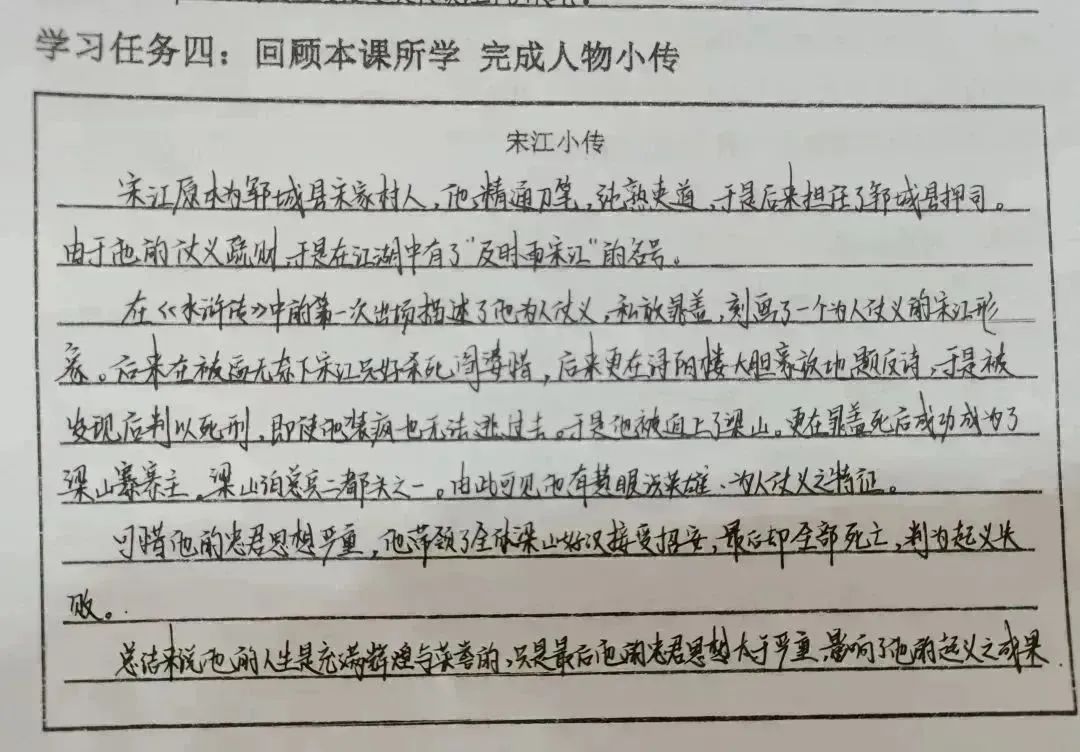 学习任务四：回顾本课所学 完成人物小传
宋江小传
宋江原本为郓城县宋家村人，他精通刀笔，纯熟吏道，于是后来担任了郓城县押司。
由于他的仗义疏财，于是在江湖中有了"反时雨宋江"的名号。
在《水浒传》中前第一次出场描述了他为人仗义，私放晁盖，刻画了一个为人仗义的宋江形
象。后来在被逼无奈下宋江只好杀死阎婆惜，后来更在浔阳楼大胆豪放地题反诗，于是被
发现后判以死刑，即使他装疯也无法逃过去。于是他被迫上了梁山。更在晁盖死后成功成为了
梁山寨寨主，梁山泊总兵二都头之一。由此可见他有慧眼识英雄、为人仗义之特征。
可惜他的忠君思想严重，他带领了全体梁山好汉接受招安，最后却全部死亡，判为起义失
败。
总结来说他的人生是充满辉煌与荣誉的，只是最后他的忠君思想太于严重，影响了他的起义之成果